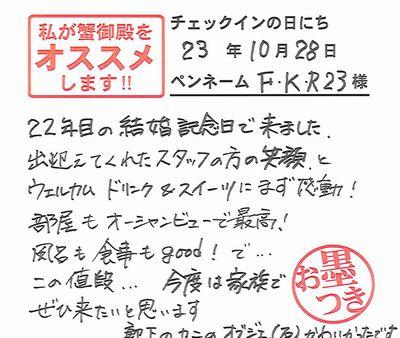 私が蟹御殿を
オススメ
します!!
チェックインの日にち
23年10月28日
ペンネーム F・K・R23様
22年目の結婚記念日で来ました。
出迎えてくれたスタッフの方の笑顔と
ウェルカムドリンク&スイーツにまず感動!
部屋もオーシャンビューで最高!
風呂も食事もgood!で...
この値段... 今度は家族で
ぜひ来たいと思います
お墨つき
廊下のカニのオブジェ(石)かわいかったです